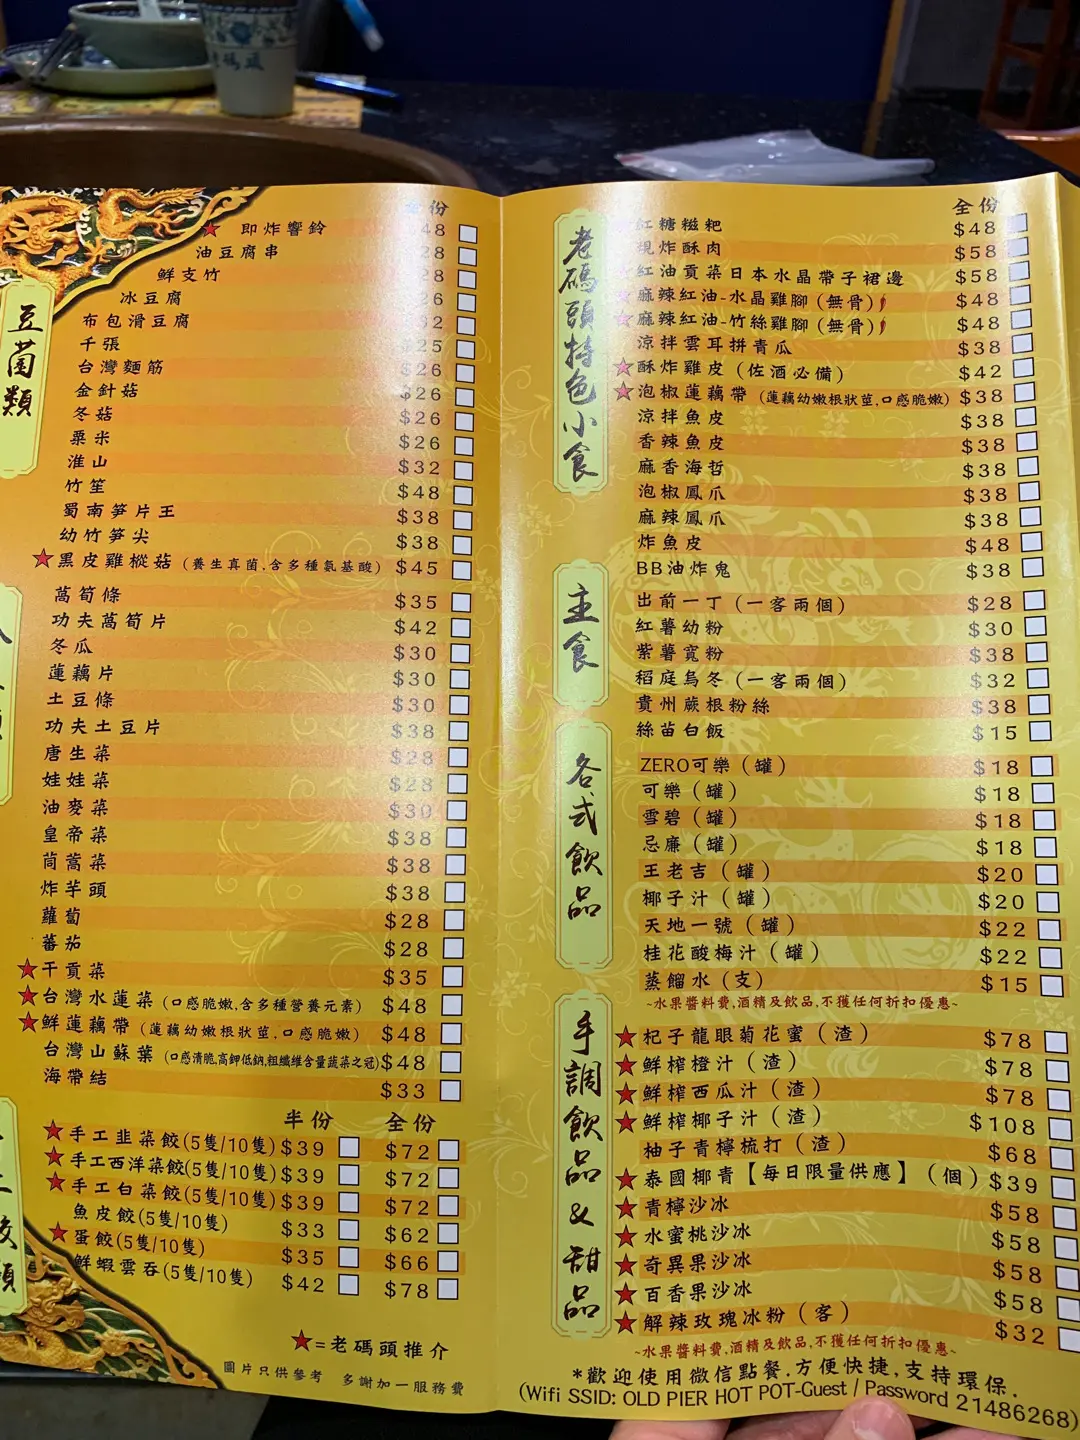 碼頭
豆菌類
全份
★ 即炸響鈴 48
油豆腐串 8
鮮支竹 8
冰豆腐 26
布包滑豆腐 2
千張 $25
台灣麵筋 $26
金針菇 $26
冬菇 $26
粟米 $26
淮山 $32
竹笙 $48
蜀南笋片王 $38
幼竹笋尖 $38
★黑皮雞樅菇 (養生真菌,含多種氨基酸) $45
萵筍條 $35
功夫萵筍片 $42
冬瓜 $30
蓮藕片 $30
土豆條 $30
功夫土豆片 $38
唐生菜 $28
娃娃菜 $28
油麥菜 $30
皇帝菜 $38
茼蒿菜 $38
炸芋頭 $38
蘿蔔 $28
蕃茄 $28
★干貢菜 $35
★台灣水蓮菜 (口感脆嫩,含多種營養元素) $48
★鮮蓮藕帶 (蓮藕幼嫩根狀莖,口感脆嫩) $48
台灣山蘇葉 (口感清脆,高鉀低鈉,粗纖維含量蔬菜之冠) $48
海帶結 $33
半份 全份
★手工韭菜餃(5隻/10隻) $39 $72
★手工西洋菜餃(5隻/10隻) $39 $72
★手工白菜餃(5隻/10隻) $39 $72
魚皮餃(5隻/10隻) $33 $62
★蛋餃(5隻/10隻) $35 $66
鮮蝦雲吞(5隻/10隻) $42 $78
★=老碼頭推介
圖片只供參考 多謝加一服務費
老碼頭特色小食
全份
紅糖糍粑 $48
現炸酥肉 $58
紅油貢菜日本水晶帶子裙邊 $58
麻辣紅油-水晶雞腳 (無骨) $48
麻辣紅油-竹絲雞腳 (無骨) $48
涼拌雲耳拼青瓜 $38
★酥炸雞皮 (佐酒必備) $42
★泡椒蓮藕帶 (蓮藕幼嫩根狀莖,口感脆嫩) $38
涼拌魚皮 $38
香辣魚皮 $38
麻香海哲 $38
泡椒鳳爪 $38
麻辣鳳爪 $38
炸魚皮 $48
BB油炸鬼 $38
主食
出前一丁 (一客兩個) $28
紅薯幼粉 $30
紫薯寬粉 $38
稻庭烏冬 (一客兩個) $32
貴州蕨根粉絲 $38
絲苗白飯 $15
各式飲品
ZERO可樂 (罐) $18
可樂 (罐) $18
雪碧 (罐) $18
忌廉 (罐) $18
王老吉 (罐) $20
椰子汁 (罐) $20
天地一號 (罐) $22
桂花酸梅汁 (罐) $22
蒸餾水 (支) $15
~水果醬料費,酒精及飲品,不獲任何折扣優惠~
手調飲品&甜品
★杞子龍眼菊花蜜 (渣) $78
★鮮榨橙汁 (渣) $78
★鮮榨西瓜汁 (渣) $78
★鮮榨椰子汁 (渣) $108
柚子青檸梳打 (渣) $68
★泰國椰青【每日限量供應】 (個) $39
★青檸沙冰 $58
★水蜜桃沙冰 $58
★奇異果沙冰 $58
★百香果沙冰 $58
★解辣玫瑰冰粉 (客) $32
~水果醬料費,酒精及飲品,不獲任何折扣優惠~
*歡迎使用微信點餐.方便快捷,支持環保.
(Wifi SSID: OLD PIER HOT POT-Guest / Password 21486268)